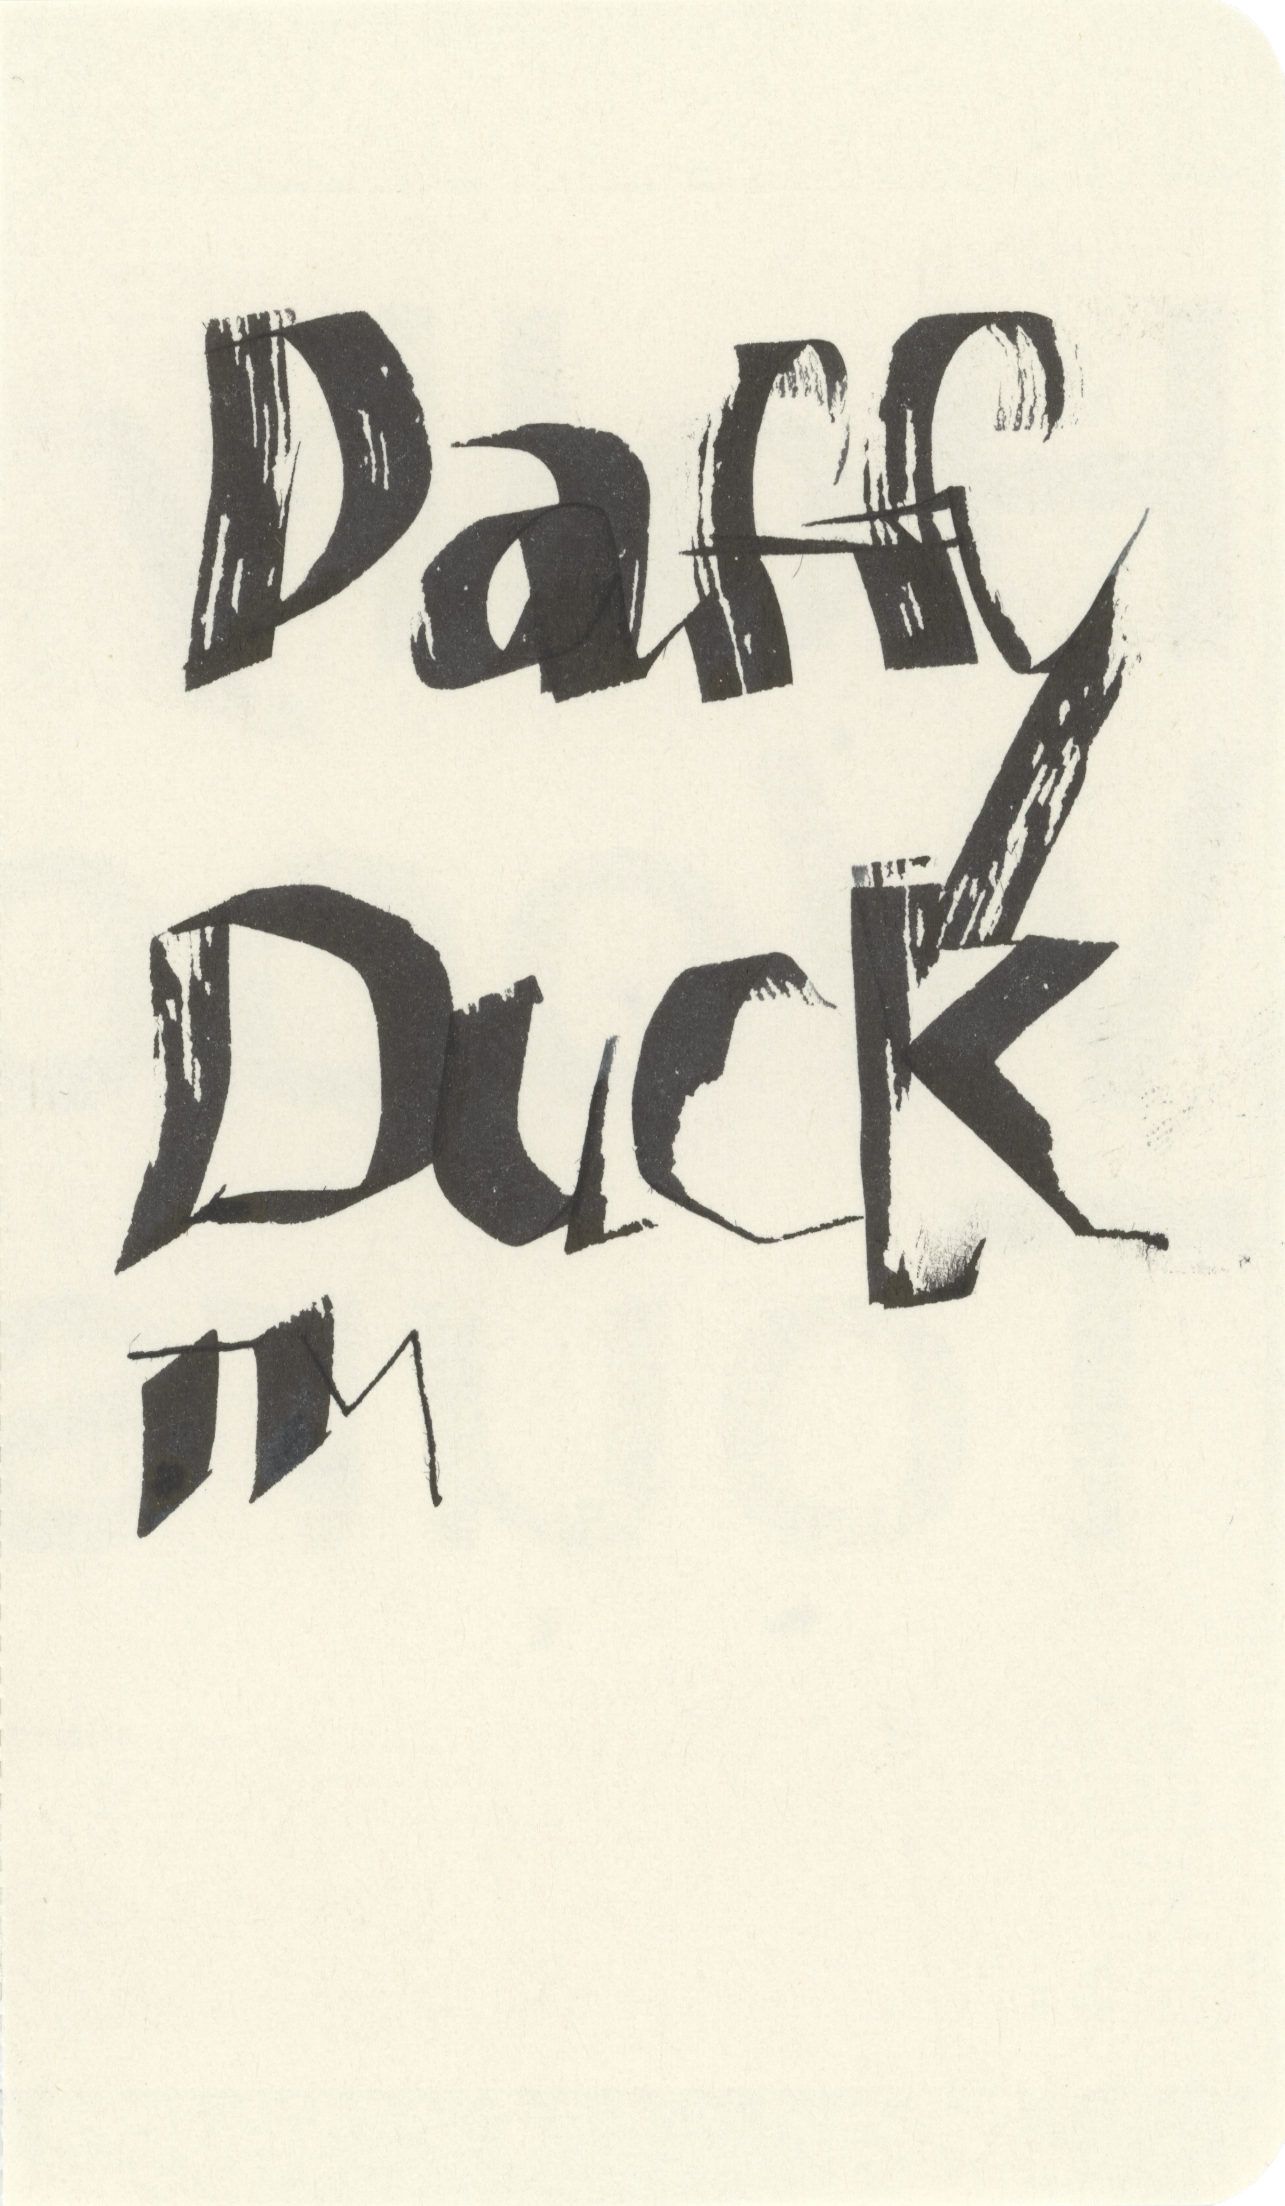 Daffy
Duck
TM